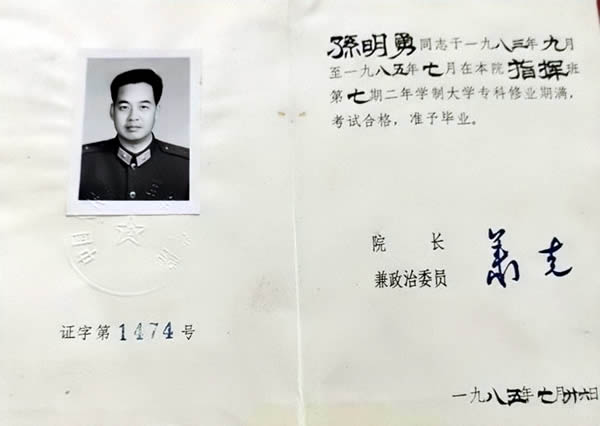 孫明勇同志于一九八三年九月
至一九八五年七月在本院指挥班
第七期二年学制大学专科修业期满，
考试合格，准予毕业。
院 长
兼政治委员
萧克
证字第1474号
一九八五年七月廿六日